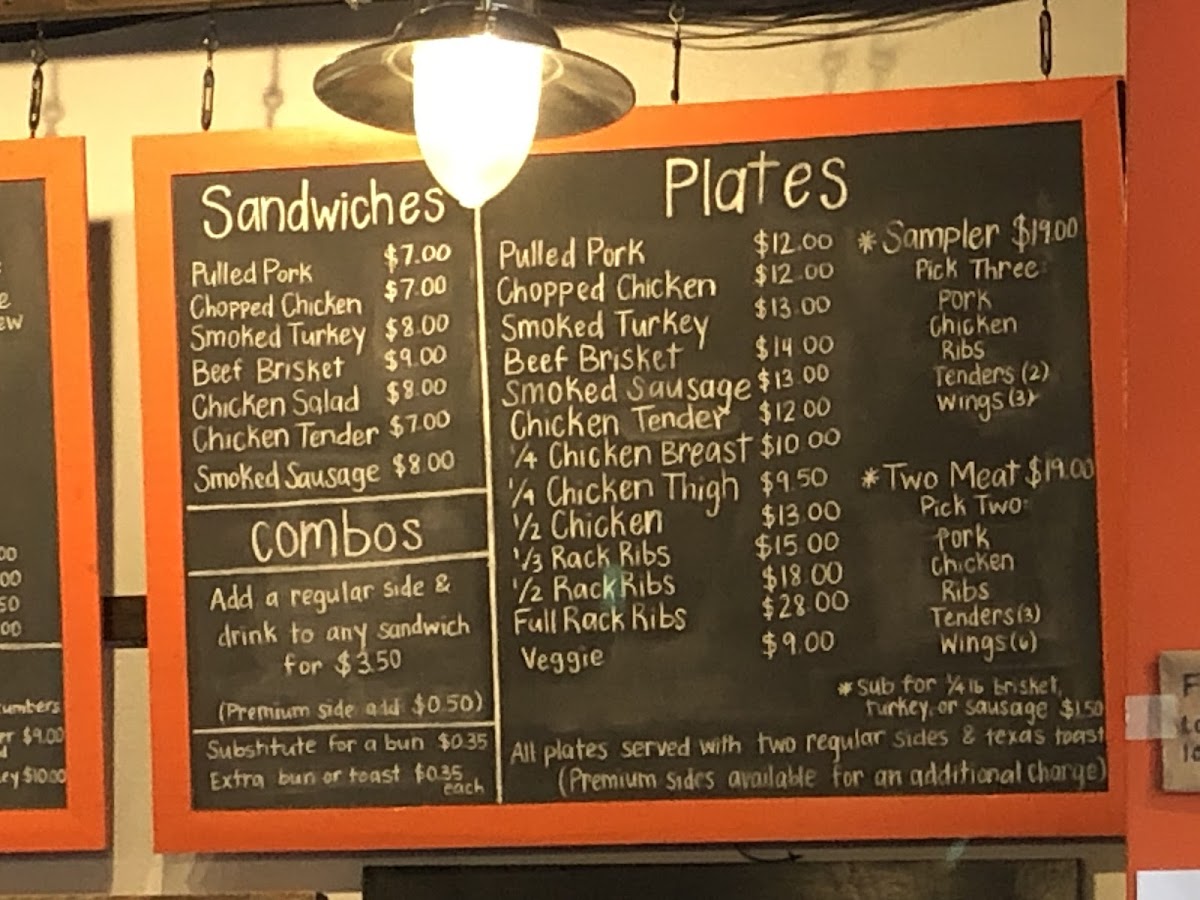 Sandwiches
Pulled Pork $7.00
Chopped Chicken $7.00
Smoked Turkey $8.00
Beef Brisket $9.00
Chicken Salad $8.00
Chicken Tender $7.00
Smoked Sausage $8.00
Combos
Add a regular side &
drink to any sandwich
for $3.50
(Premium side add $0.50)
Substitute for a bun $0.35
Extra bun or toast $0.35
each
Plates
Pulled Pork $12.00
Chopped Chicken $12.00
Smoked Turkey $13.00
Beef Brisket $14.00
Smoked Sausage $13.00
Chicken Tender $12.00
1/4 Chicken Breast $10.00
1/4 Chicken Thigh $9.50
1/2 Chicken $13.00
1/3 Rack Ribs $15.00
1/2 Rack Ribs $18.00
Full Rack Ribs $28.00
Veggie $9.00
*Sampler $19.00
Pick Three:
Pork
Chicken
Ribs
Tenders (2)
Wings (3)
*Two Meat $19.00
Pick Two:
Pork
Chicken
Ribs
Tenders (3)
Wings (6)
*Sub for 1/4 lb brisket,
turkey, or sausage $1.50
All plates served with two regular sides & texas toast
(Premium sides available for an additional charge)
$9.00
$10.00